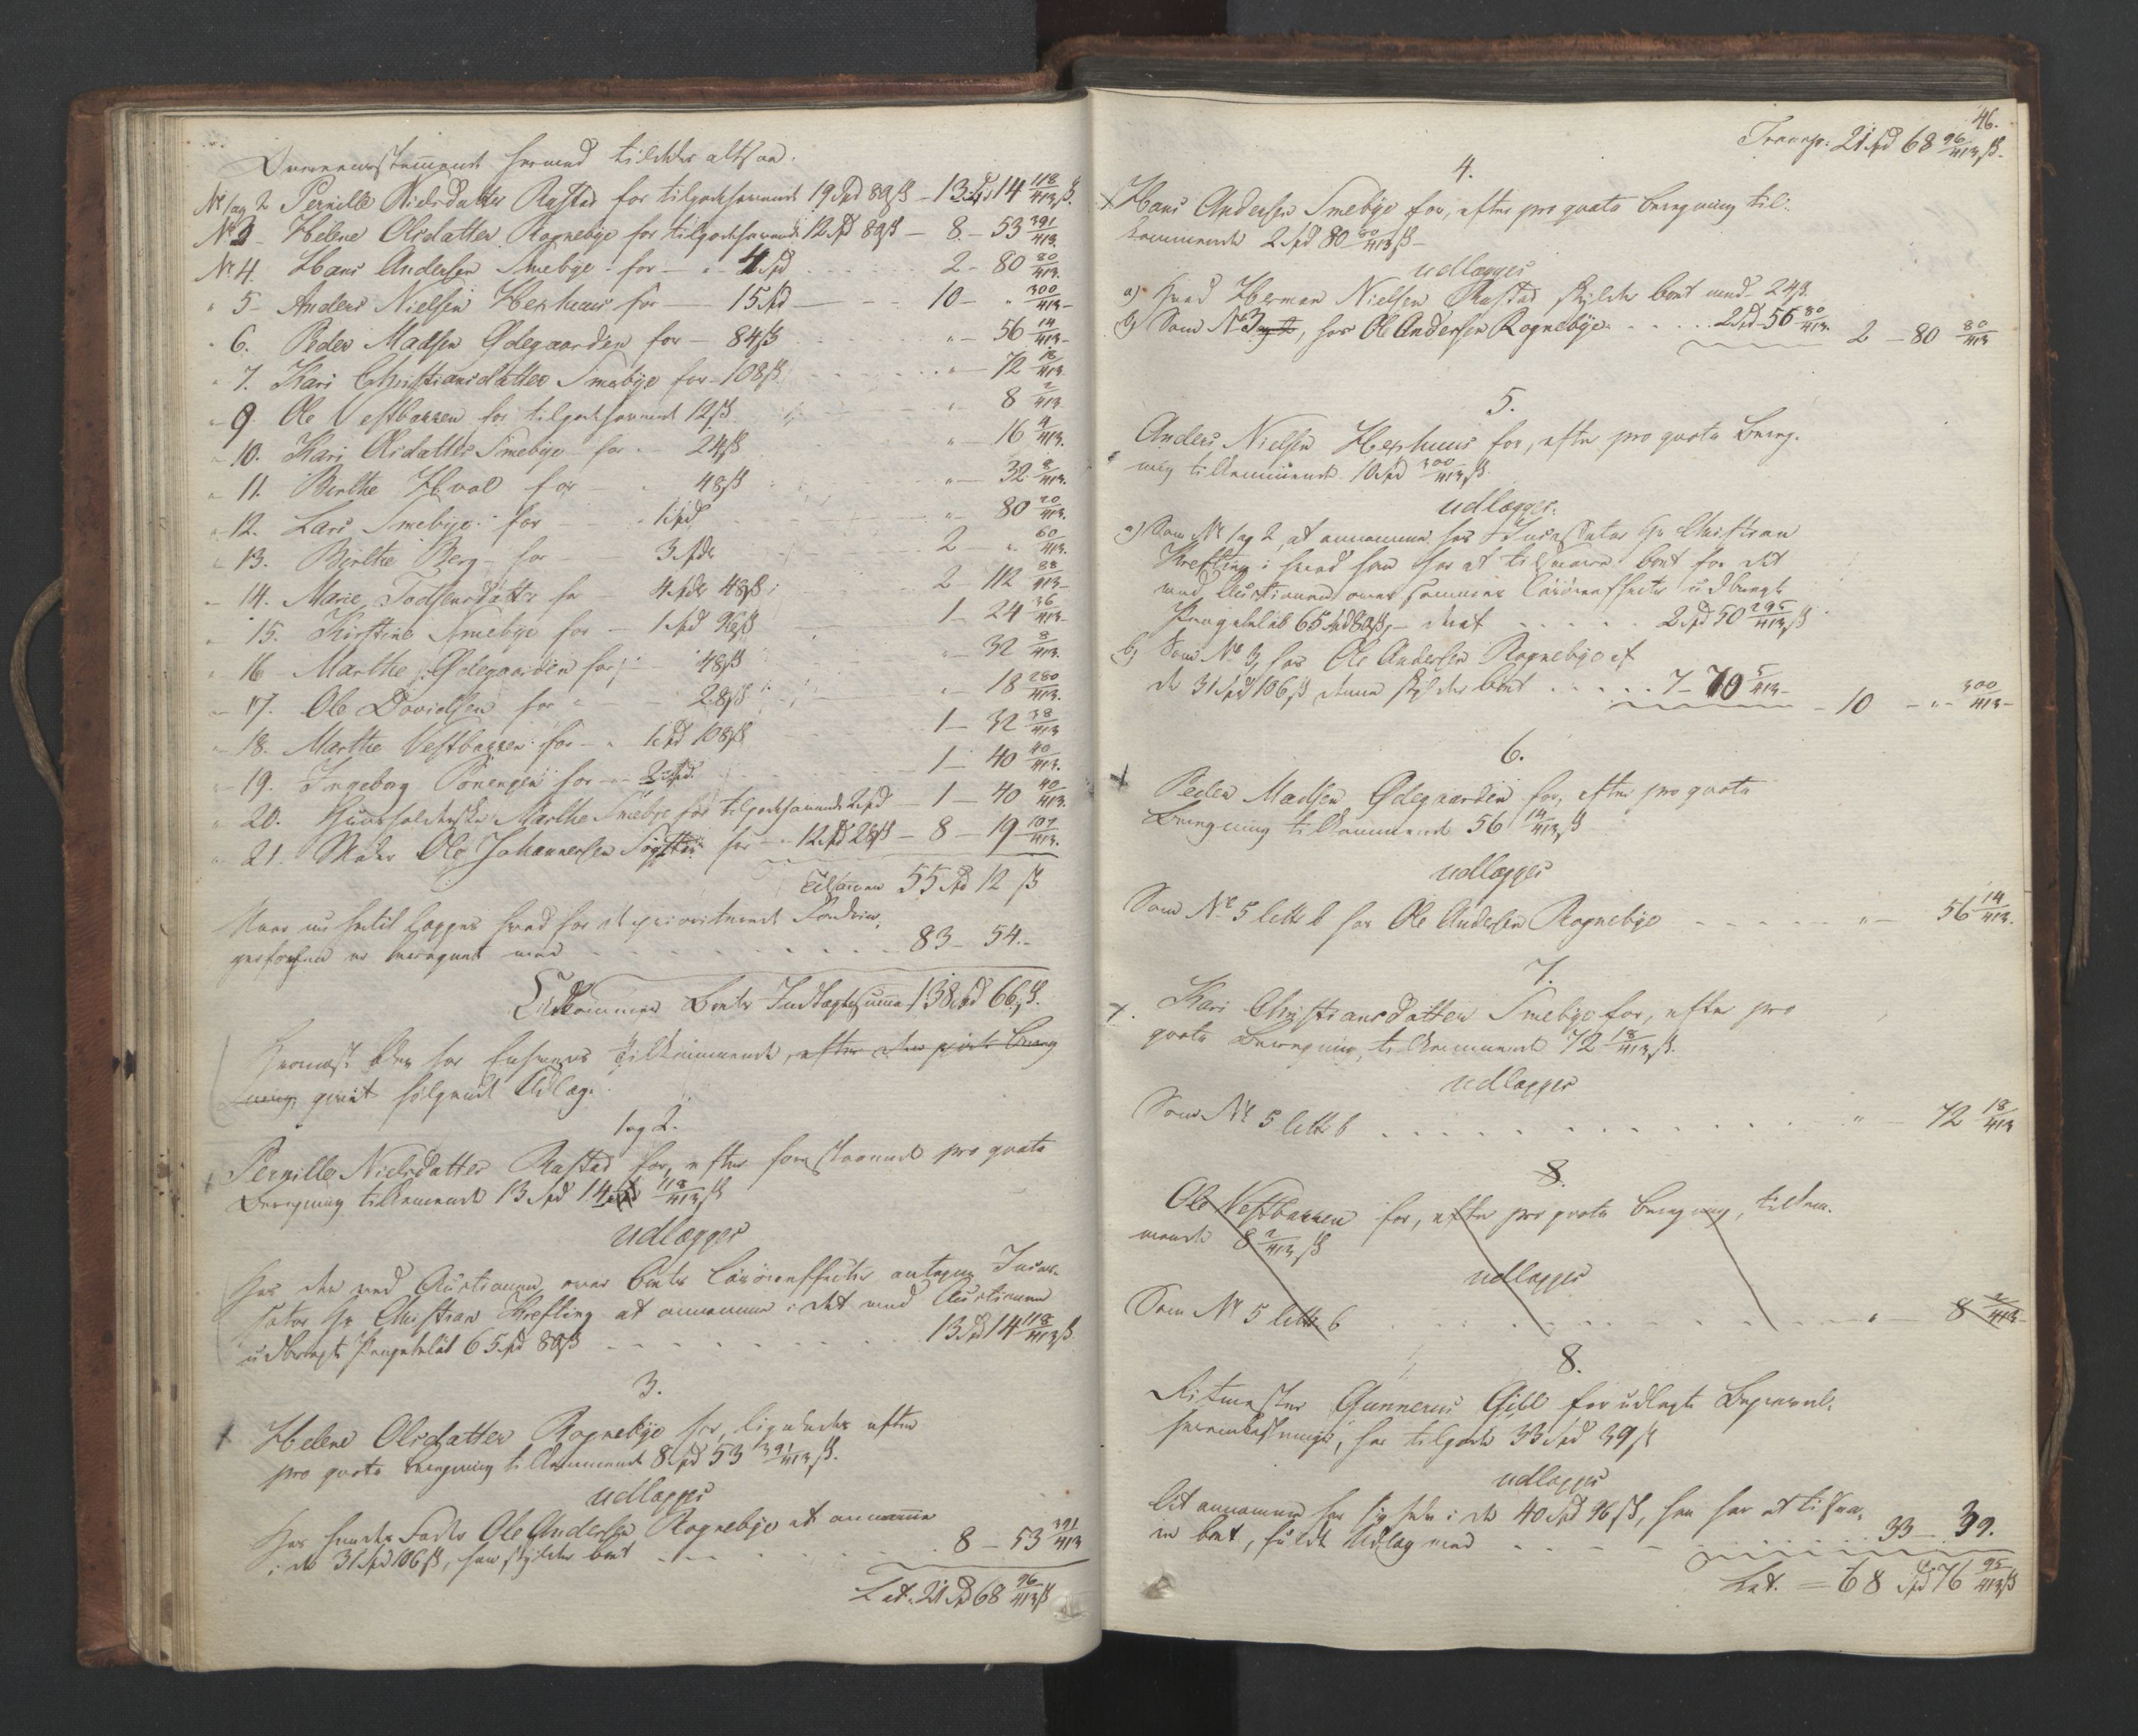 Overeensstemmende hermed tildeles altsaa:
No 1 og 2 Pernille Nielsdatter Rustad for tilgodehavende 19 Spd 89 ß – 13 Spd 14 118/413 ß.
No 3 – Helene Olsdatter Rognebye for tilgodehavende 12 Spd 89 ß – 8 – 53 391/413
No 4. Hans Andersen Smebye for – „ 4 Spd 2 – 80 80/413
„ 5 – Anders Nielsen Hexhuus for – 15 Spd – 10 – „ 300/413
„ 6. Peder Madsen Ødegaarden for – 84 ß „ – 56 14/413
„ 7. Kari Christiansdatter Smebye for – 108 ß „ – 72 18/413
„ 9. Ole Vestbakken for tilgodehavende 12 ß „ – 8 2/413
„ 10. Kari Olsdatter Smebye for – 24 ß „ – 16 4/413
„ 11. Birthe Hval for – 48 ß „ – 32 8/413
„ 12. Lars Smebye for – 1 Spd „ – 80 20/413
„ 13. Birthe Berg for – 3 Spd 2 – „ 60/413
„ 14. Marie Todsensdatter for – 4 Spd 48 ß 2 – 112 88/413
„ 15. Kirstine Smebye for – 1 Spd 96 ß 1 – 24 36/413
„ 16 – Marthe Ødegaarden for – 48 ß „ – 32 8/413
„ 17. Ole Davidsen for – 28 ß „ – 18 280/413
„ 18. Marthe Vestbakken for – 1 Spd 108 ß 1 – 32 38/413
„ 19. Ingeborg for – 2 Spd 1 – 40 40/413
„ 20. Huusholderske Marthe Smebye for tilgodehavende 2 Spd – 1 – 40 40/413
„ 21. Ole Johannesen for – 12 Spd 28 ß – 8 – 19 107/413
Tilsammen 55 Spd 12 ß
Naar nu hertil lægges hvad for de prioriterede Fordrin-
ger foran er beregnet med 83 – 54 –
Udkommer Boets Indtægtssumma 138 Spd 66 ß.
Hvornæst blev for Enhvers Tilkommende, efter den giorte Bereg
ning, giort følgende Udlæg.
1 og 2.
Pernille Nielsdatter Rustad for, efter foranstaaende pro qvota
Beregning tilkommende 13 Spd 14 118/413 ß
udlægges
Hos den ved Auctionen over Boets Løsøreeffecter antagne Incas-
sator Hr Christian Krefting at annamme i det ved Auctionen
udbragte Pengebeløb 65 Spd 89 ß 13 Spd 14 118/413 ß.
3.
Helene Olsdatter Rognebye for, ligeledes efter
pro qvota Beregning tilkommende 8 Spd 53 391/413 ß.
udlægges
Hos hendes Fader Ole Andersen Rognebye at annamme
i de 31 Spd 106 ß, han skylder boet 8 – 53 391/413
Lat. 21 Spd 68 96/413 ß
46.
Transp: 21 Spd 68 96/413 ß.
4.
Hans Andersen Smebye for, efter pro qvota Beregning til-
kommende 2 Spd 80 80/413 ß –
udlægges
a) Hvad Herman Nielsen Rustad skylder boet med – 24 ß.
b) Som No 3, hos Ole Andersen Rognebye 2 Spd 56 80/413 2 – 80 80/413
5.
Anders Nielsen Hexhuus for, efter pro qvota Bereg-
ning tilkommende 10 Spd 300/413 ß.
udlægges.
a) Som No 1 og 2, at annamme hos Incassator Hr Christian
Krefting i hvad han har at tilsvare boet for det
ved Auctionen over sammes Løsøreeffecter udbragte
Pengebeløb 65 Spd 89 ß, – 2 Spd 50 295/413 ß
b) Som No 3, hos Ole Andersen Rognebye af
de 31 Spd 106 ß denne skylder boet 7 – 70 5/413 – 10 – „ – 300/413 –
6.
Peder Madsen Ødegaarden for, efter pro qvota
Beregning tilkommende 56 14/413 ß
udlægges
Som No 5 litt b hos Ole Andersen Rognebye „ – 56 14/413
7.
Kari Christiansdatter Smebye for, efter pro
qvota Beregning, tilkommende 72 18/413 ß.
udlægges
Som No 5 litt b „ – 72 18/413
8.
Ole Vestbakken for, efter pro qvota Beregning, tilkom-
mende 8 2/413 ß
udlægges
Som No 5 litt b „ – 8 2/413
8.
Ritmester Gunnerus for udlagte Begravel-
, har tilgode 33 Spd 39 ß
udlægges
At annamme hos sig selv i de 40 Spd 96 ß, han har at tilsva-
re boet, fuldt Udlæg med 33 – 39.
Lat. = 68 Spd 76 95/413 ß